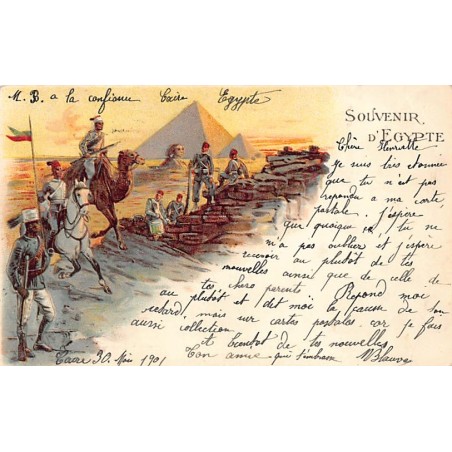 M. B. a la confianu Caire Egypte
SOUVENIR
D'EGYPTE
Chère Henriette
Je suis très étonnée
que tu n'est pas
repondu a ma carte
postale. j'espère
que quoique tu ne
m'a pas oublier et j'espère
recevoir au plutôt de tes
nouvelles ainsi que de celle de
tes chers parents Repond moi
au plutôt et dit moi la cause de ton
retard, mais sur cartes postales car je fais
aussi collection
et bientot de tes nouvelles
Ton amie qui t'embrasse
Caire 30. Mai 1901 Blanche